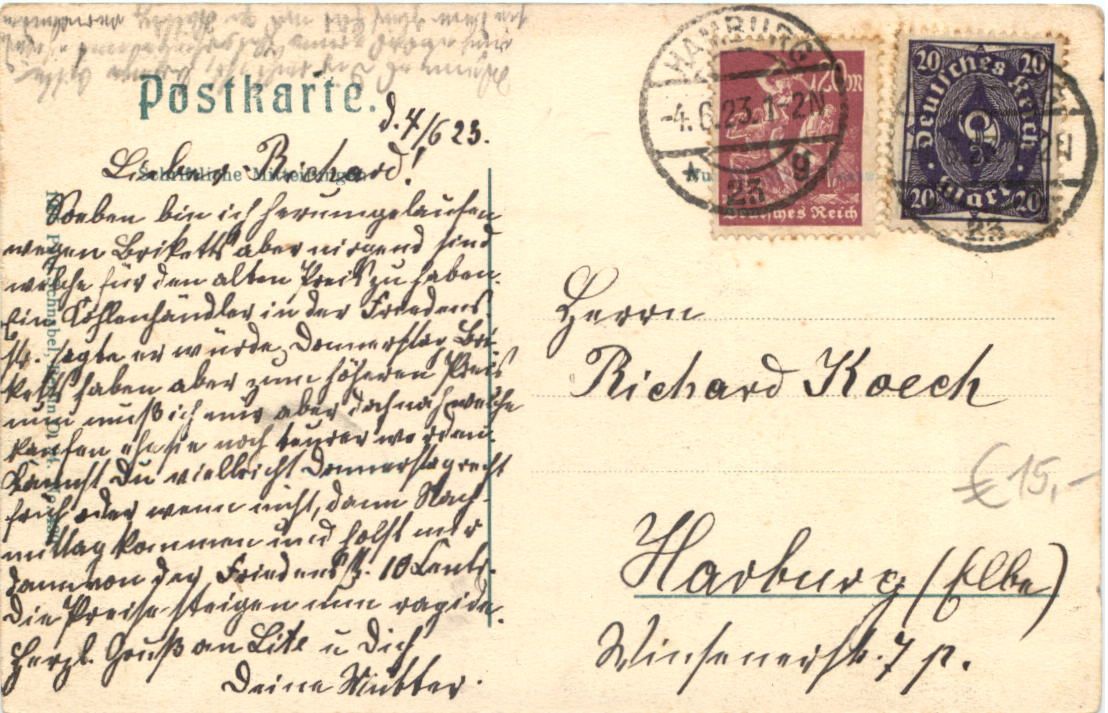 Postkarte.
d. 4/6 23.
Schriftliche Mitteilungen
Lieber Richard!
Soeben bin ich herumgelaufen
wegen Briketts aber nirgend sind
welche für den alten Preis zu haben.
Ein Kohlenhändler in der Friedens
str. sagte er würde Donnerstag Bri-
ketts haben aber zum höheren Preis
nun muß ich mir aber doch noch welche
kaufen ehe sie noch teurer werden.
Kannst Du vielleicht Donnerstag recht
früh oder wenn nicht, dann Nach-
mittag kommen und holst mir
dann von der Friedensstr. 10 Centr.
Die Preise steigen nun rapide.
Herzl. Gruß an Lite u Dich
Deine Mutter.
HAMBURG
-4.6.23.1-2N
* 23 g
120M
Deutsches Reich
20 20
Deutsches Reich
20 Mark 20
23
Herrn
Richard Koech
€ 15,-
Harburg (Elbe)
Winsenerstr. 7 p.